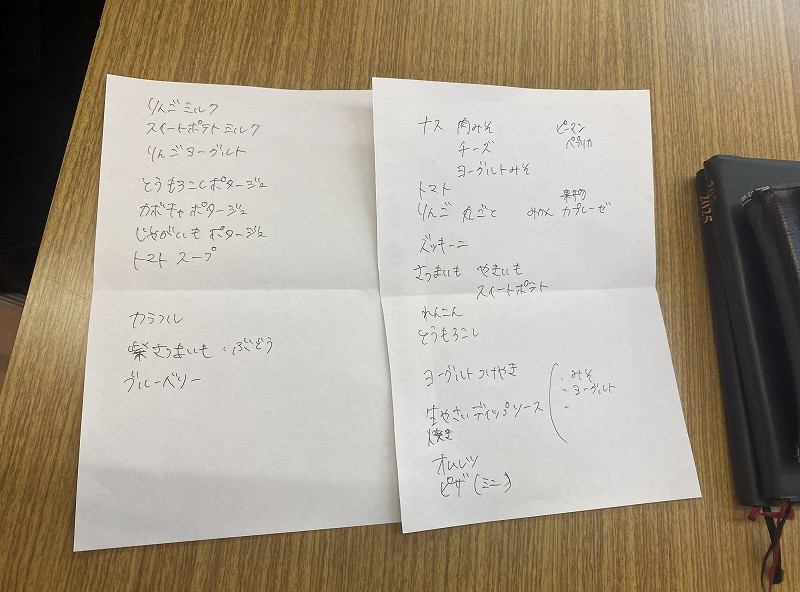 りんごミルク
スイートポテトミルク
りんごヨーグルト
とうもろこしポタージュ
カボチャポタージュ
じゃがいもポタージュ
トマトスープ
カラフル
紫さつまいも・ぶどう
ブルーベリー
ナス 肉みそ ピーマン
チーズ パプリカ
ヨーグルトみそ
トマト 果物
りんご 丸ごと みかん カプレーゼ
ズッキーニ
さつまいも やきいも
スイートポテト
れんこん
とうもろこし
ヨーグルトつけやき
・みそ
・ヨーグルト
・
生やさいディップソース
焼き
オムレツ
ピザ(ミニ)
2025